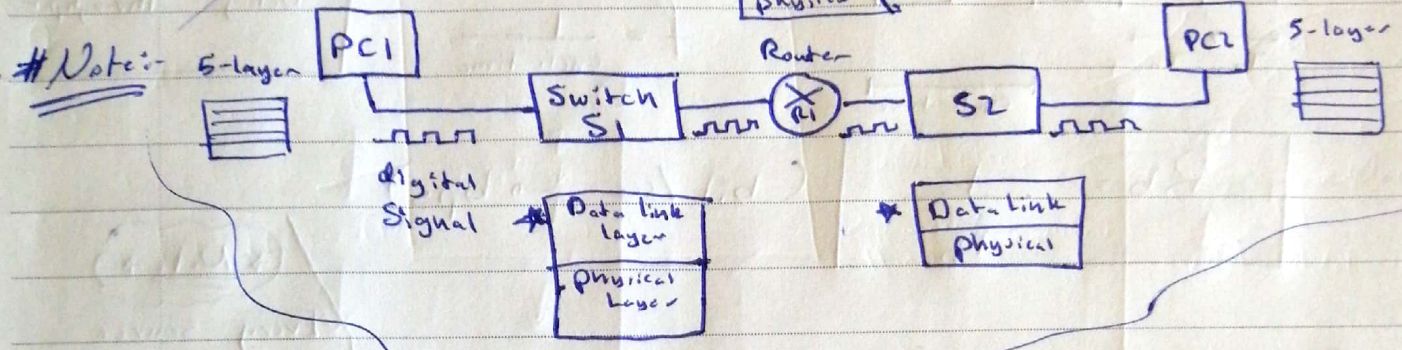 physical
#Note:-
5-layer
PC1
Switch
S1
Router
R1
S2
PC2
5-layer
digital
Signal
Data link
layer
physical
Layer
Data link
physical